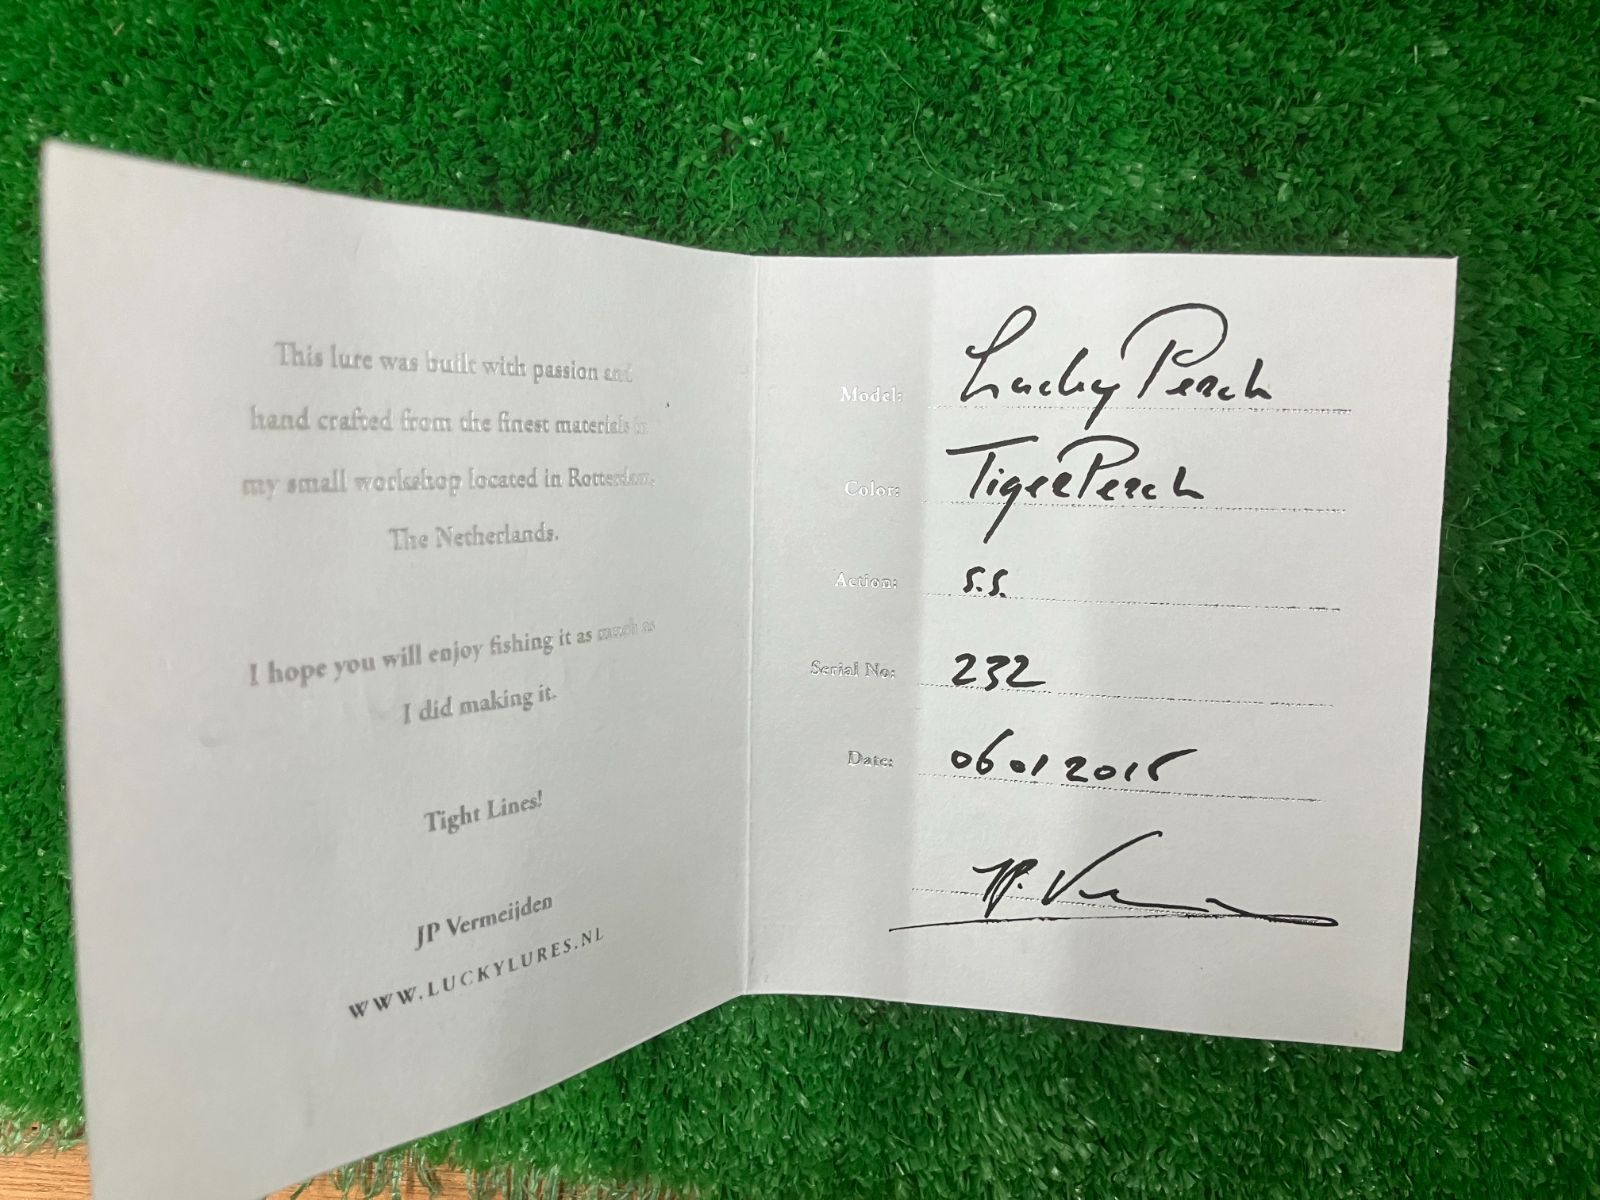 This lure was built with passion and
hand crafted from the finest materials in
my small workshop located in Rotterdam,
The Netherlands.
I hope you will enjoy fishing it as much as
I did making it.
Tight Lines!
JP Vermeijden
WWW.LUCKYLURES.NL
Model: Lucky Perch
Color: Tiger Perch
Action: S.S.
Serial No: 232
Date: 06 01 2015
JP. V